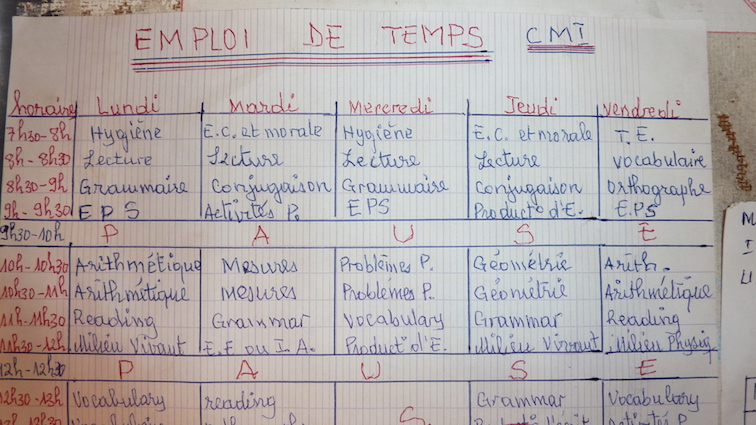 EMPLOI DE TEMPS CMI
horaire Lundi Mardi Mercredi Jeudi Vendredi
7h30-8h Hygiène E.C. et morale Hygiène E.C. et morale T.E.
8h-8h30 Lecture Lecture Lecture Lecture Vocabulaire
8h30-9h Grammaire Conjugaison Grammaire Conjugaison Orthographe
9h-9h30 EPS Activités P. EPS Product° d'E. E.PS
9h30-10h P A U S E
10h-10h30 Arithmétique Mesures Problèmes P. Géométrie Arith.
10h30-11h Arithmétique Mesures Problèmes P. Géométrie Arithmétique
11h-11h30 Reading Grammar Vocabulary Grammar Reading
11h30-12h Milieu Vivant E.F ou I.A. Product° d'E. Milieu Vivant Milieu Physiq
12h-12h30 P A U S E
12h30-13h Vocabulary reading Grammar Vocabulary